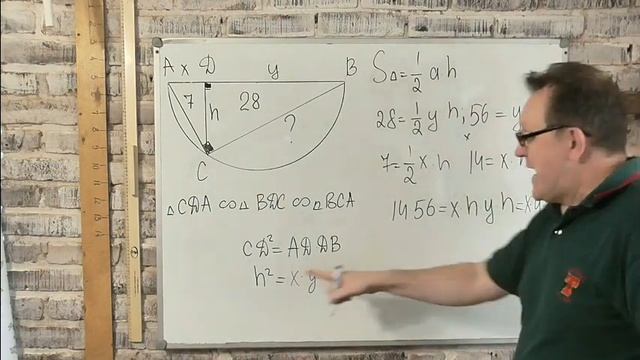 A x D y B
7 h 28 ?
C
△CDA ∞ △BDC ∞ △BCA
CD² = AD DB
h² = x · y
S△ = 1/2 a h
28 = 1/2 y h , 56 = y
7 = 1/2 x · h 14 = x ·
14 56 = x h y h = x